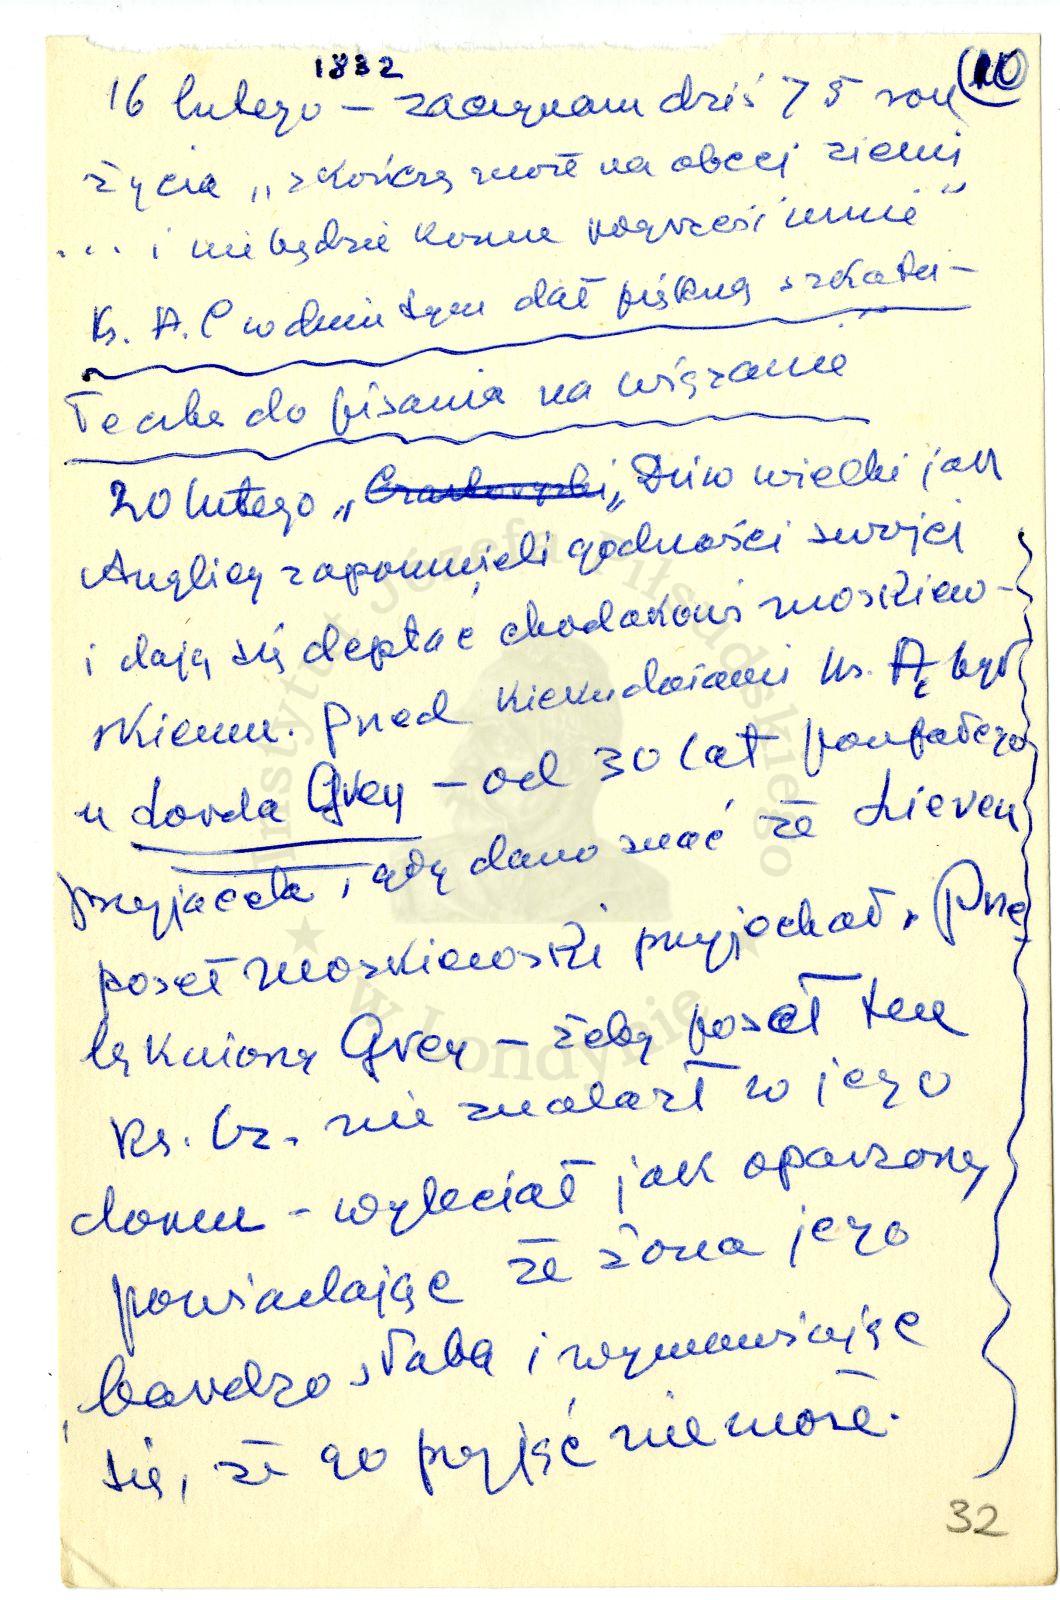 1832
(10)
16 lutego – zaczynam dziś 75 rok
życia „skończę może na obcej ziemi
... i nie będzie komu pogrześć mnie”
Ks. A. C w dniu tym dał piękną szkatu-
Teczkę do pisania na wiązanie”
20 lutego „Czartoryski „Dziw wielki jak
Anglicy zapomnieli godności swojej
i dają się deptać chodakowi moskiew-
skiemu. Przed kilkudniami Ks. A. był
u Lorda Grey – od 30 lat poufałego
przyjaciela, gdy dano znać że Lieven
poseł moskiewski przyjechał. Prze
lękniony Grey – żeby poseł ten
Ks. Cz. nie znalazł w jego
domu – wyleciał jak oparzony
powiadając że żona jego
bardzo słaba i wymawiając
się, że go przyjąć nie może.
32
Instytut Józefa Piłsudskiego
w Londynie